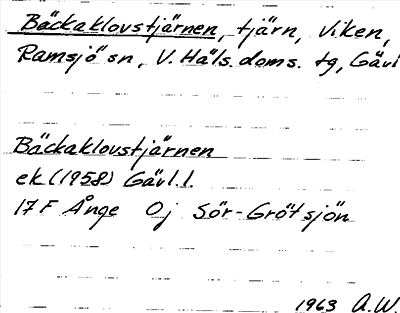 Bäckaklovstjärnen, tjärn, Viken,
Ramsjö sn, V. Häls. doms. tg, Gävl
Bäckaklovstjärnen
ek (1958) Gävl.l.
17 F Ånge Oj Sör-Grötsjön
1963 A.W.